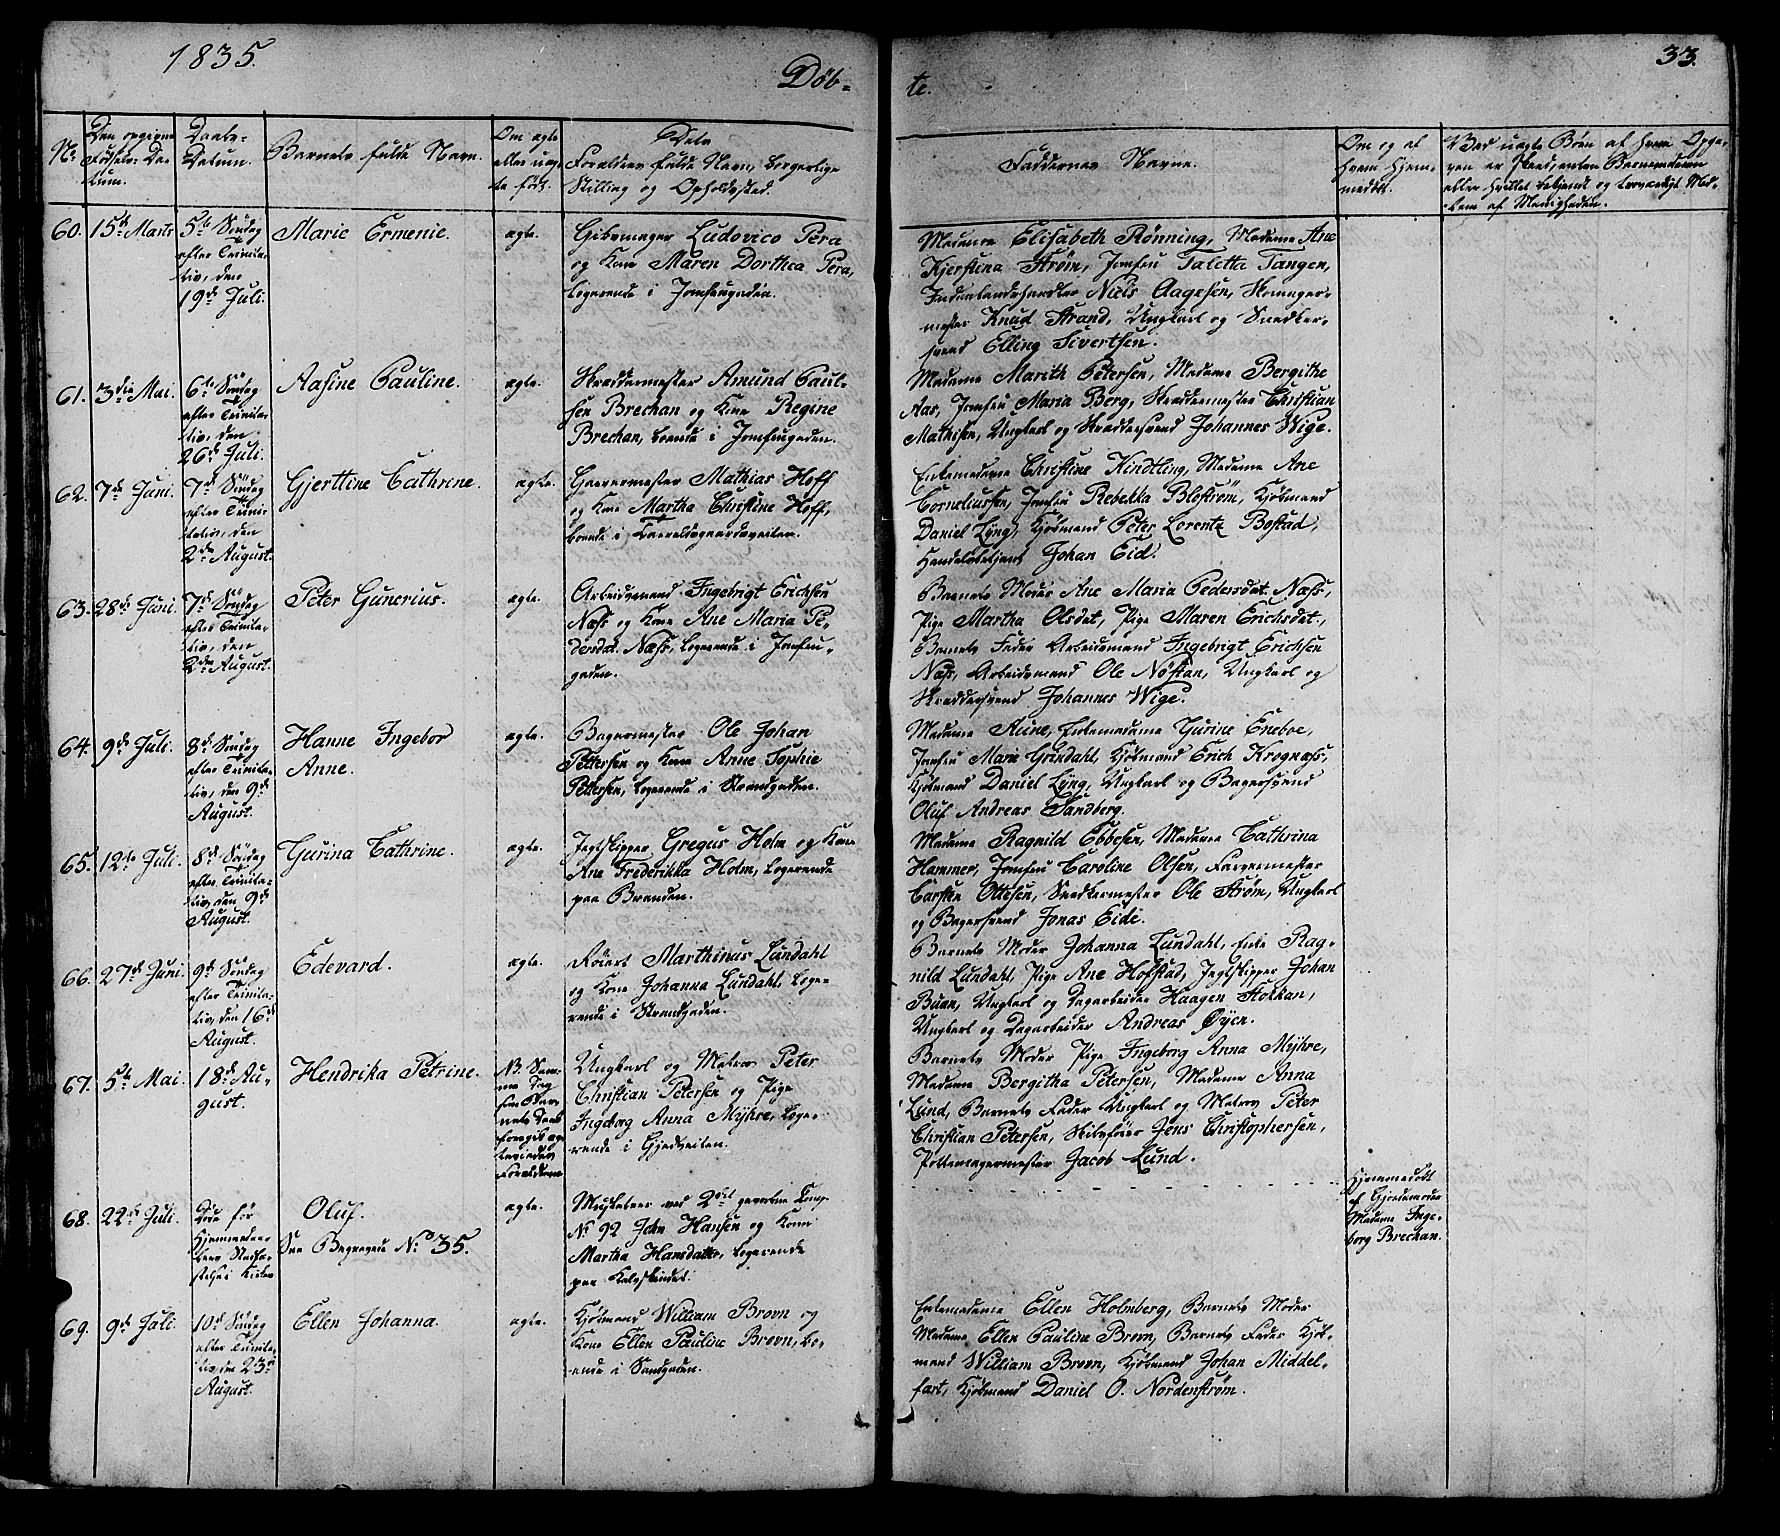 1835.
Døb-
te.
33.
No.
Den opgivne Fødsels-Da-
tum.
Daabs-
Datum.
Barnets fulde Navn.
Om ægte
eller uæg-
te født.
Dets
Forældres fulde Navn, borgerlige
Stilling og Opholdssted.
Faddernes Navne.
Om og af
hvem Hjem-
medøbt.
60.
15de Marts
5te Søndag
efter Trinita-
tis, den
19de Juli.
Marie Ermenie.
ægte.
Gibsmager Ludovico Pera
og Kone Maren Dorthea Pera,
logerende i Jomfrugaden.
Madame Elisabeth Rønning, Madame Ane
Kjerstina Strøm, Jomfru Taletta Tangen,
Niels Aagesen,
mester Knud Strand, Ungkarl og Snedker-
svend Elling Sivertsen.
61.
3die Mai.
6te Søndag
efter Trinita-
tis, den
26de Juli.
Aasine Pauline.
ægte.
Skræddermester Amund Paul-
sen Brechan og Kone Regine
Brechan, boende i Jomfrugaden.
Madame Marith Petersen, Madame Bergithe
Aas, Jomfru Maria Berg, Skræddermester Christian
Mathisen, Ungkarl og Skræddersvend Johannes Wige.
62.
7de Juni.
7de Søndag
efter Trini-
tatis, den
2den August.
Gjerttine Cathrine.
ægte.
Garvermester Mathias Hoff
og Kone Martha Christine Hoff,
boende i
Enkemadame Christine Kindtling, Madame Ane
Corneliussen, Jomfru Rebekka Blostrøm, Kjøbmand
Daniel Lyng, Kjøbmand Peter Lorentz Bostad,
Handelsbetjent Johan Eid.
63.
28de Juni.
7de Søndag
efter Trinita-
tis, den
2den August.
Peter Gunerius.
ægte.
Arbeidsmand Ingebrigt Erichsen
Næss og Kone Ane Maria Pe-
dersdat. Næss, logerende i Jomfru-
gaden.
Barnets Moder Ane Maria Pedersdat. Næss,
Pige Martha Olsdat, Pige Maren Erichsdat.,
Barnets Fader Arbeidsmand Ingebrigt Erichsen
Næss, Arbeidsmand Ole Nøstan, Ungkarl og
Skræddersvend Johannes Wige.
64.
9de Juli.
8de Søndag
efter Trinita-
tis, den 9de
August.
Hanne Ingebor
Anne.
ægte.
Bagermester Ole Johan
Pettersen og Kone Anne Sophie
Pettersen, logerende i Strandgaden.
Madame Aune, Enkemadame Gurine Eneboe,
Jomfru Marie Grindahl, Kjøbmand Erich Krognæss,
Kjøbmand Daniel Lyng, Ungkarl og Bagersvend
Oluf Andreas Sandberg.
65.
12te Juli.
8de Søndag
efter Trinita-
tis, den 9de
August.
Gurina Cathrine.
ægte.
Jagtskipper Gregus Holm og Kone
Ane Frederikka Holm, logerende
paa Branden.
Madame Ragnild Ebbesen, Madame Cathrina
Hammer, Jomfru Caroline Olsen, Farvermester
Carsten Ottesen, Snedkermester Ole Strøm, Ungkarl
og Bagersvend Jonas Eide.
66.
27de Juni.
9de Søndag
efter Trinita-
tis, den 16de
August.
Edevard.
ægte.
Røiert Marthinus Lundahl
og Kone Johanna Lundahl, loge-
rende i Strandgaden.
Barnets Moder Johanna Lundahl, Enke Rag-
nild Lundahl, Pige Ane Hofstad, Jagtskipper Johan
Buan, Ungkarl og Dagarbeider Haagen Stokkan,
Ungkarl og Dagarbeider Andreas Øyen.
67.
5te Mai.
18de Au-
gust.
Hendrika Petrine.
Ungkarl og Matros Peter
Christian Petersen og Pige
Ingeborg Anna Myhre, loge-
rende i Gjedveiten.
Barnets Moder Pige Ingeborg Anna Myhre,
Madame Bergitha Petersen, Madame Anna
Lund, Barnets Fader Ungkarl og Matros Peter
Christian Petersen, Skibsfører Jens Christophersen,
Pottemagermester Jacob Lund.
68.
22de Juli.
Døde før
Oluf.
See Begravede No. 35.
ægte.
Musketeer ved 2det Comp.
No. 92 John Hansen og Kone
Martha Hansdatter, logerende
paa Kalvskindet.
Hjemmedøbt
af Gjordemoder
Madame Inge-
borg Brechan.
69.
9de Juli.
10de Søndag
efter Trinita-
tis, den 23de
August.
Ellen Johanna.
ægte.
Kjøbmand William Brovn og
Kone Ellen Pauline Brovn, bo-
ende i Sandgaden.
Enkemadame Ellen Holmberg, Barnets Moder
Madame Ellen Pauline Brovn, Barnets Fader Kjøb-
mand William Brovn, Kjøbmand Johan Middel-
fart, Kjøbmand Daniel O. Nordenstrøm.